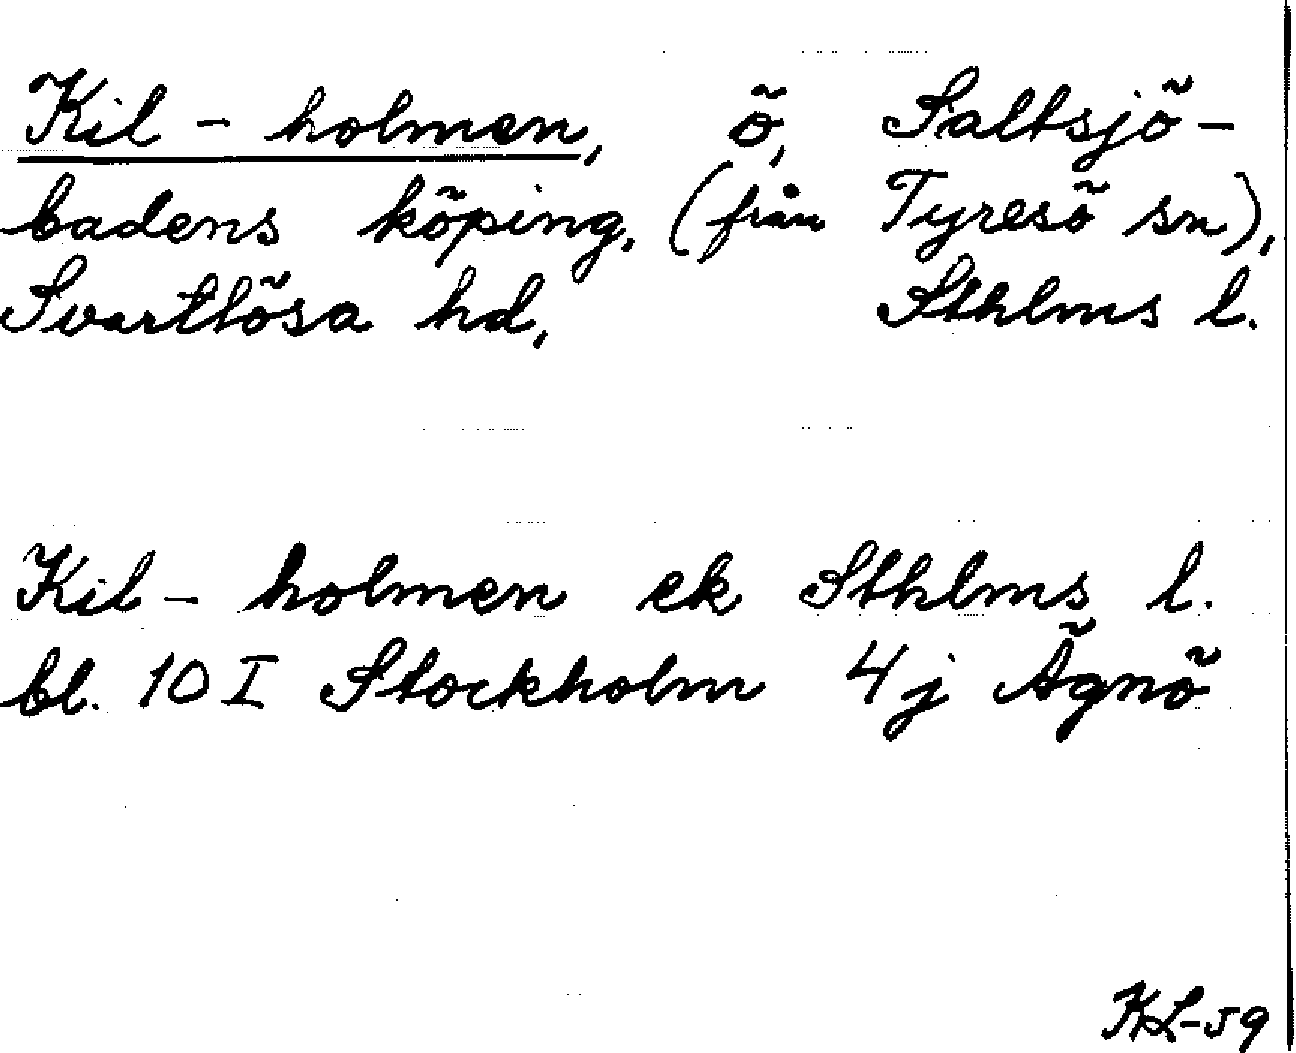 Kil - holmen, ö, Saltsjö-
badens köping, (från Tyresö sn),
Svartlösa hd, Sthlms l.
Kil - holmen ek Sthlms l.
bl. 10 I Stockholm 4 j Ägnö
KL-59